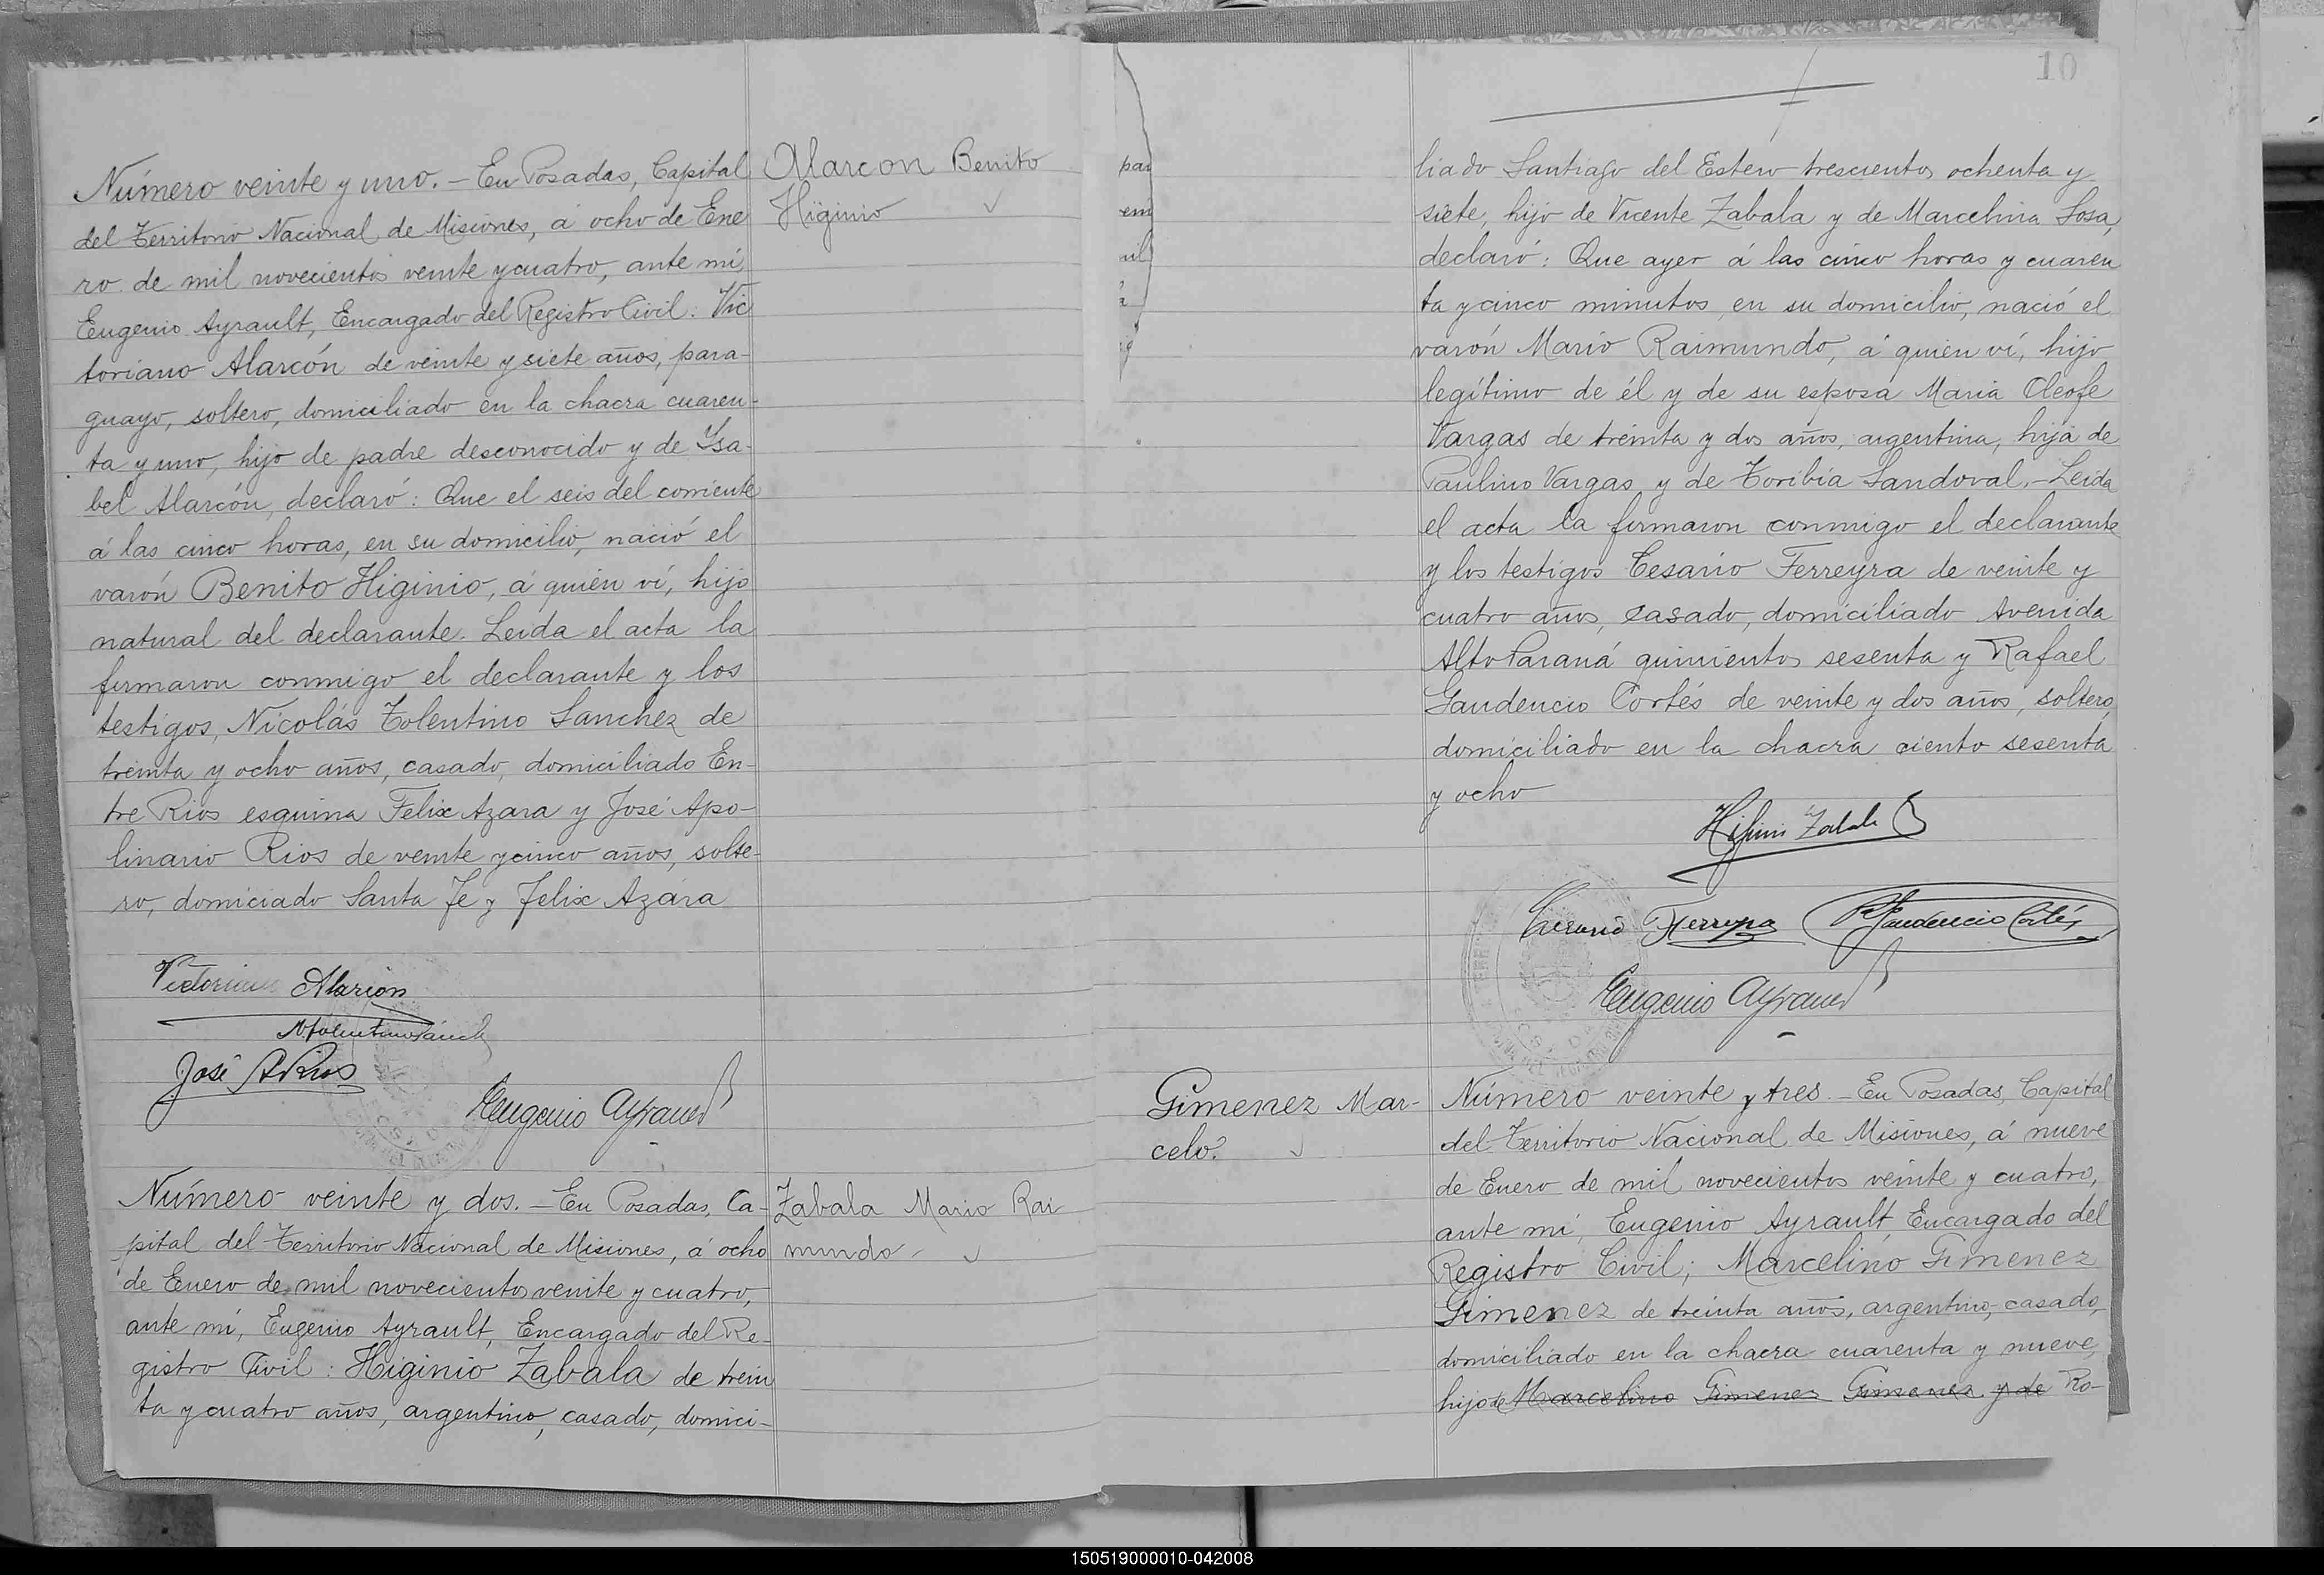 Número veinte y uno. – En Posadas, Capital
del Territorio Nacional de Misiones, á ocho de Ene
ro de mil novecientos veinte y cuatro, ante mí,
Eugenio Ayrault, Encargado del Registro Civil: Vic
toriano Alarcón de veinte y siete años, para-
guayo, soltero, domiciliado en la chacra cuaren-
ta y uno, hijo de padre desconocido y de Ysa-
bel Alarcón, declaró: Que el seis del corriente
á las cinco horas, en su domicilio, nació el
varón Benito Higinio, á quién ví, hijo
natural del declarante. Leida el acta la
firmaron conmigo el declarante y los
testigos, Nicolás Tolentino Sanchez de
treinta y ocho años, casado, domiciliado En-
tre Rios esquina Felix Azara y José Apo-
linario Rios de veinte y cinco años, solte-
ro, domiciado Santa Fe y Felix Azara
Alarcon Benito
Higinio
Victoriano Alarcón
N. Tolentino Sánch
José A Rios
Eugenio Ayrault
Número veinte y dos. – En Posadas, Ca-
pital del Territorio Nacional de Misiones, á ocho
de Enero de mil novecientos veinte y cuatro,
ante mí, Eugenio Ayrault, Encargado del Re-
gistro Civil: Higinio Zabala de trein
ta y cuatro años, argentino, casado, domici-
Zabala Mario Rai
mundo
10
par
liado Santiago del Estero trescientos ochenta y
siete, hijo de Vicente Zabala y de Marcelina Sosa,
declaró: Que ayer á las cinco horas y cuaren
ta y cinco minutos, en su domicilio, nació el
varón Mario Raimundo, á quién ví, hijo
legítimo de él y de su esposa Maria Cleofe
Vargas de treinta y dos años, argentina, hija de
Paulino Vargas y de Toribia Sandoval. – Leida
el acta la firmaron conmigo el declarante
y los testigos Cesario Ferreyra de veinte y
cuatro años, casado, domiciliado Avenida
Alto Paraná quinientos sesenta y Rafael
Gaudencio Cortés de veinte y dos años, soltero,
domiciliado en la chacra ciento sesenta
y ocho
Higinio Zabala
Cesario Ferreyra
R Gaudencio Cortés
Eugenio Ayrault
Gimenez Mar-
celo.
Número veinte y tres. – En Posadas, Capital
del Territorio Nacional de Misiones, á nueve
de Enero de mil novecientos veinte y cuatro,
ante mí, Eugenio Ayrault, Encargado del
Registro Civil; Marcelino Gimenez
Gimenez de treinta años, argentino, casado,
domiciliado en la chacra cuarenta y nueve,
hijo de Marcelino Gimenez Gimenez y de Ro-
150519000010-042008